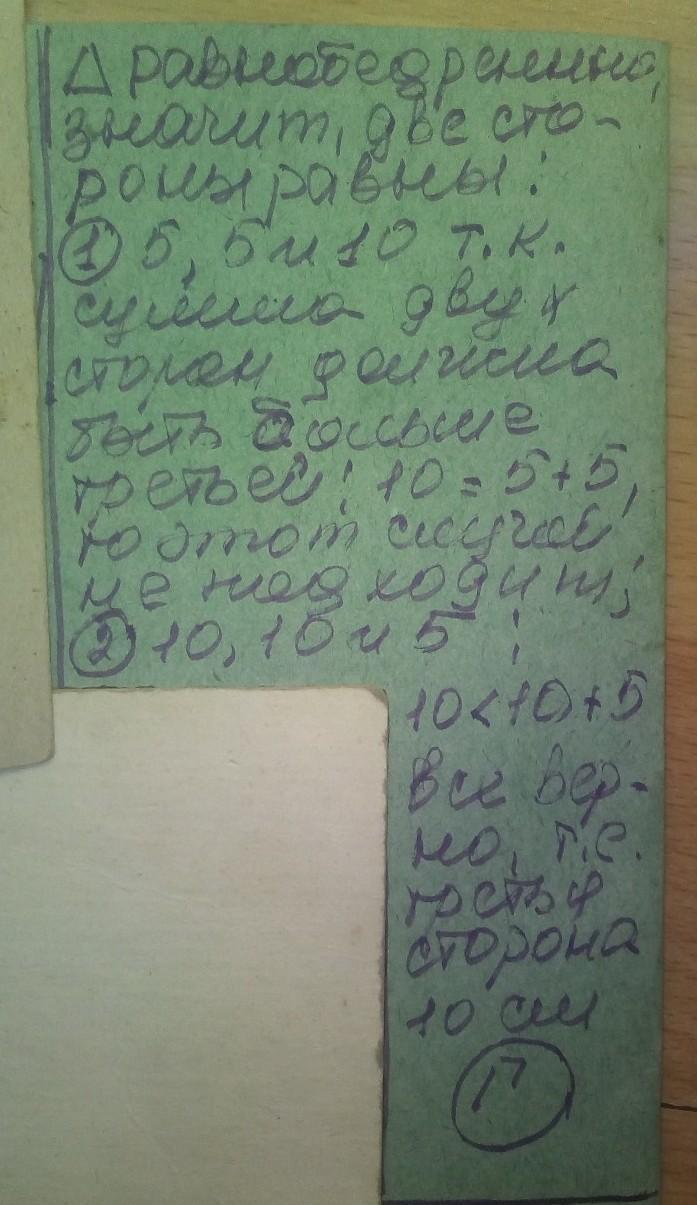 △ равнобедренный,
значит, две сто-
роны равны:
① 5, 5 и 10 т.к.
сумма двух
сторон должна
быть больше
третьей! 10 = 5+5,
то этот случай
не подходит;
② 10, 10 и 5 ;
10<10+5
все вер-
но, т.е.
третья
сторона
10 см
Г